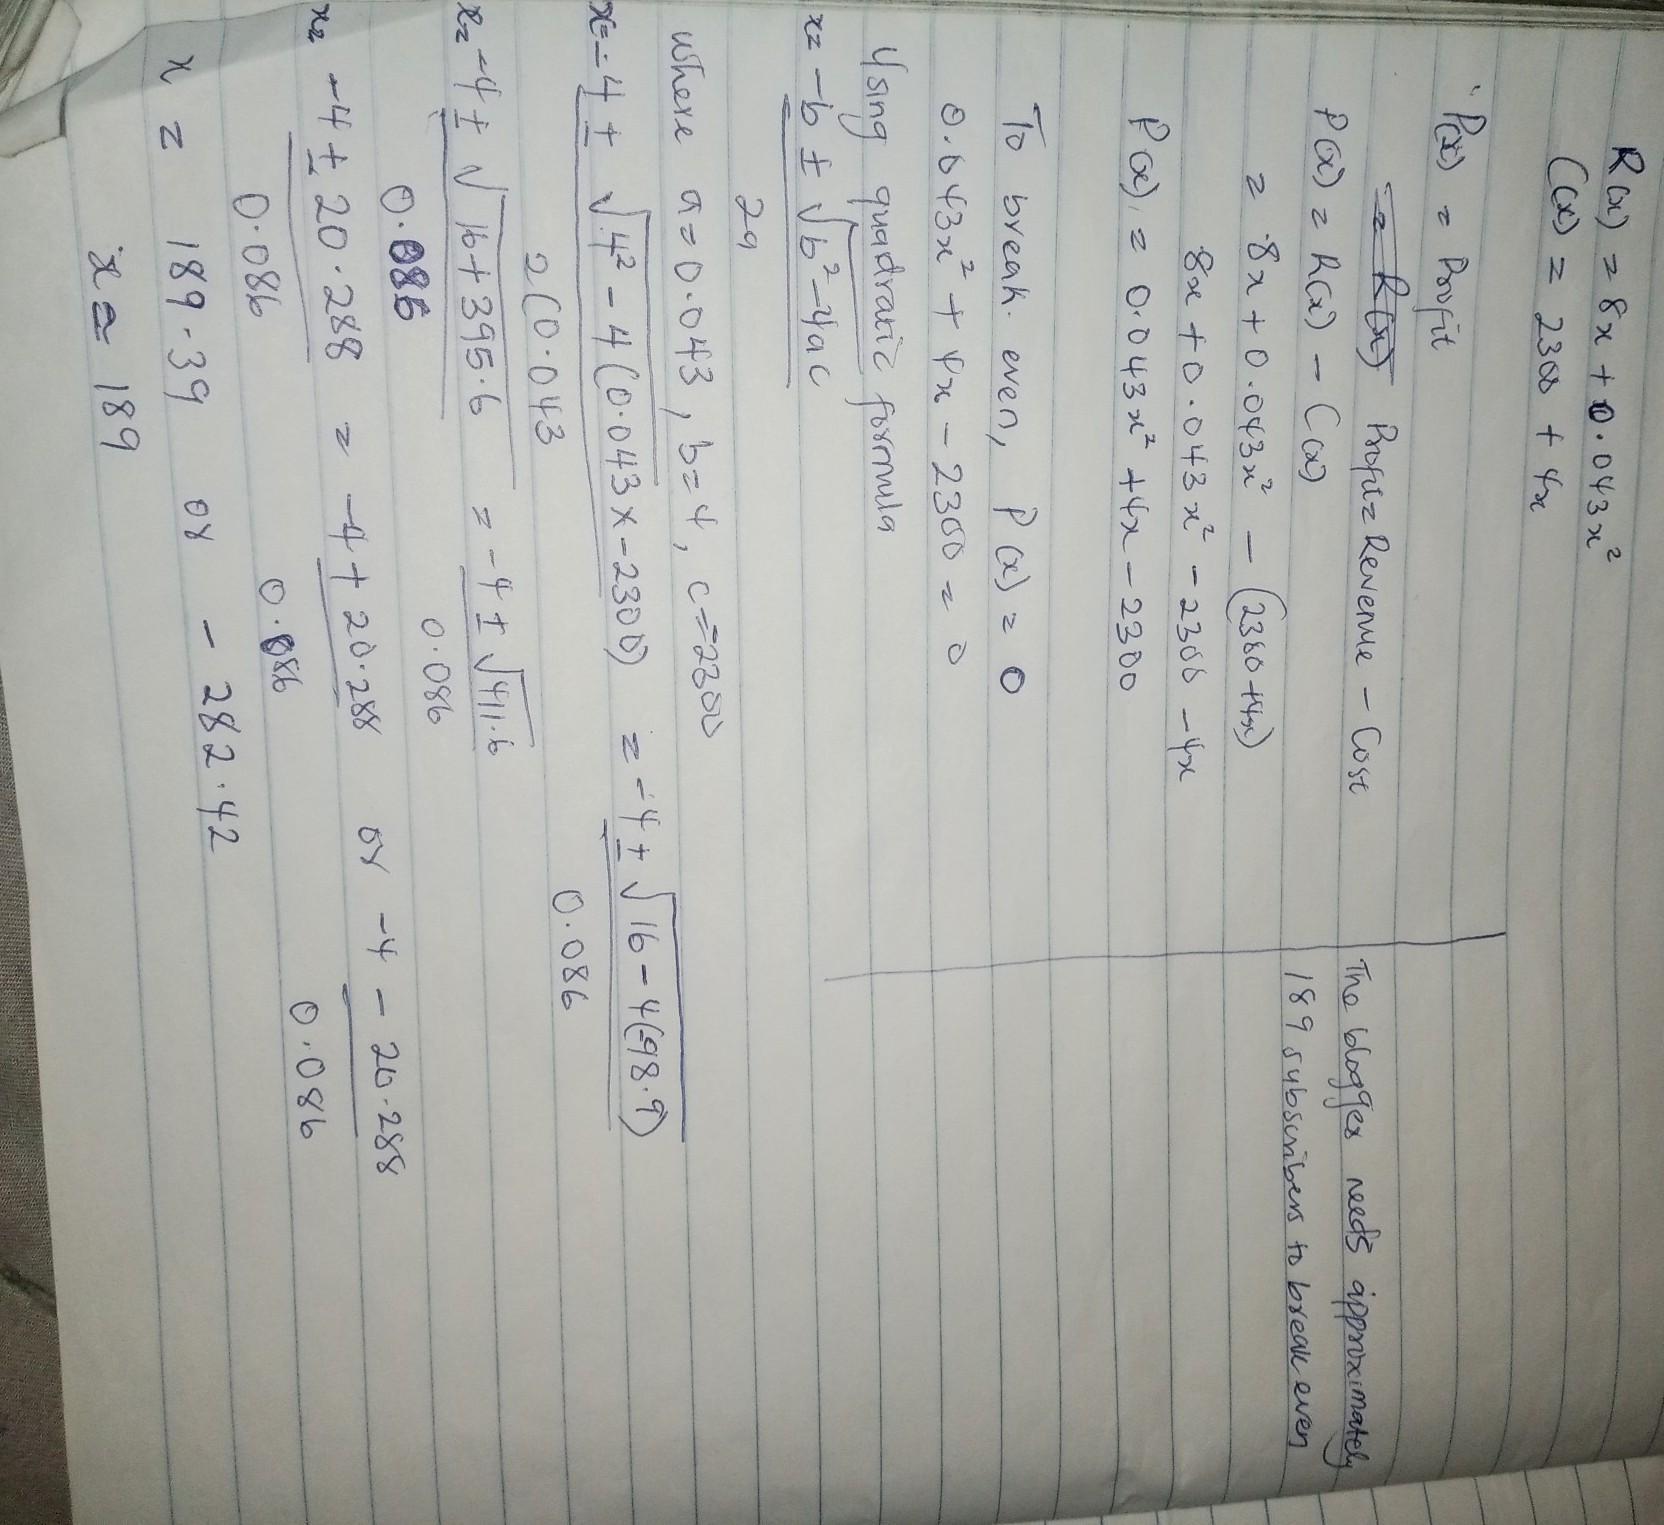 R(x) = 8x + 0.043x²
C(x) = 2300 + 4x
P(x) = Profit
= R(x) Profit = Revenue - Cost
P(x) = R(x) - C(x)
= 8x + 0.043x² - (2300 + 4x)
8x + 0.043x² - 2300 - 4x
P(x) = 0.043x² + 4x - 2300
To break even, P(x) = 0
0.043x² + 4x - 2300 = 0
Using quadratic formula
x = -b ± √b² - 4ac
2a
where a = 0.043, b = 4, c = -2300
x = -4 ± √4² - 4(0.043 x -2300) = -4 ± √16 - 4(-98.9)
2(0.043 0.086
x = -4 ± √16 + 395.6 = -4 ± √411.6
0.086 0.086
x = -4 ± 20.288 = -4 + 20.288 or -4 - 20.288
0.086 0.086 0.086
x = 189.39 or - 282.42
x ≃ 189
The blogger needs approximately
189 subscribers to break even